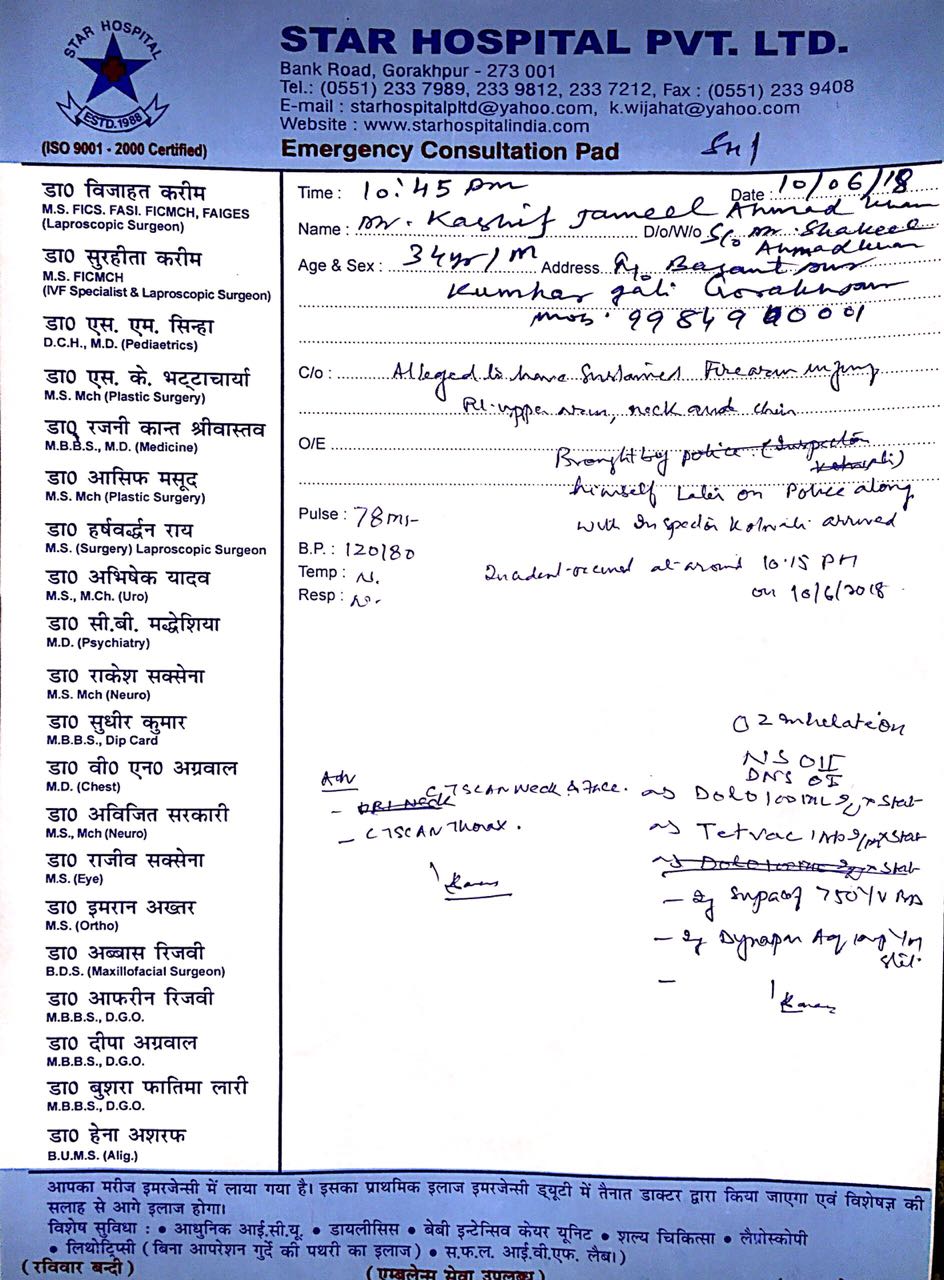 STAR HOSPITAL
ESTD. 1988
(ISO 9001 - 2000 Certified)
STAR HOSPITAL PVT. LTD.
Bank Road, Gorakhpur - 273 001
Tel.: (0551) 233 7989, 233 9812, 233 7212, Fax : (0551) 233 9408
E-mail : starhospitalpltd@yahoo.com, k.wijahat@yahoo.com
Website : www.starhospitalindia.com
Emergency Consultation Pad
डा0 विजाहत करीम
M.S. FICS. FASI. FICMCH, FAIGES
(Laproscopic Surgeon)
डा0 सुरहीता करीम
M.S. FICMCH
(IVF Specialist & Laproscopic Surgeon)
डा0 एस. एम. सिन्हा
D.C.H., M.D. (Pediaetrics)
डा0 एस. के. भट्टाचार्या
M.S. Mch (Plastic Surgery)
डा0 रजनी कान्त श्रीवास्तव
M.B.B.S., M.D. (Medicine)
डा0 आसिफ मसूद
M.S. Mch (Plastic Surgery)
डा0 हर्षवर्द्धन राय
M.S. (Surgery) Laproscopic Surgeon
डा0 अभिषेक यादव
M.S., M.Ch. (Uro)
डा0 सी.बी. मद्धेशिया
M.D. (Psychiatry)
डा0 राकेश सक्सेना
M.S. Mch (Neuro)
डा0 सुधीर कुमार
M.B.B.S., Dip Card
डा0 वी0 एन0 अग्रवाल
M.D. (Chest)
डा0 अविजित सरकारी
M.S., Mch (Neuro)
डा0 राजीव सक्सेना
M.S. (Eye)
डा0 इमरान अख्तर
M.S. (Ortho)
डा0 अब्बास रिजवी
B.D.S. (Maxillofacial Surgeon)
डा0 आफरीन रिजवी
M.B.B.S., D.G.O.
डा0 दीपा अग्रवाल
M.B.B.S., D.G.O.
डा0 बुशरा फातिमा लारी
M.B.B.S., D.G.O.
डा0 हेना अशरफ
B.U.M.S. (Alig.)
Time : 10:45 pm Date : 10/06/18
Name : Mr. Kashif Jameel Ahmad Khan D/o/W/o S/o Mr. Shakeel
Ahmad Khan
Age & Sex : 34 yr/M Address R/o Basant pur
Kumhar gali Gorakhpur
Mob.
C/o : Alleged to have Sustained Firearm injury
Rt. upper arm, neck and chin
O/E Brought by police (Inspector
Kotwali)
himself Later on Police along
Pulse : 78 m/-
with Inspector Kotwali arrived
B.P.: 120/80
Temp : N. Incident occured at around 10.15 PM
Resp : N. on 10/6/2018
O2 inhelation
NS
DNS
Adv
CT SCAN Neck & Face.
Neck
- CT SCAN Thorax.
DOLO 100ML Stat
Tetvac 1 Amp Stat
DOLO 100ML Stat
- Supacef 750 I/V BD
- Dynapar Aq
आपका मरीज इमरजेन्सी में लाया गया है। इसका प्राथमिक इलाज इमरजेन्सी ड्यूटी में तैनात डाक्टर द्वारा किया जाएगा एवं विशेषज्ञ की
सलाह से आगे इलाज होगा।
विशेष सुविधा : • आधुनिक आई.सी.यू. • डायलीसिस • बेबी इन्टेन्सिव केयर यूनिट • शल्य चिकित्सा • लैप्रोस्कोपी
• लिथोट्रिप्सी ( बिना आपरेशन गुर्दे की पथरी का इलाज ) • स.फ.ल. आई.वी.एफ. लैब।)
(रविवार बन्दी)
(एम्बुलेन्स सेवा उपलब्ध)